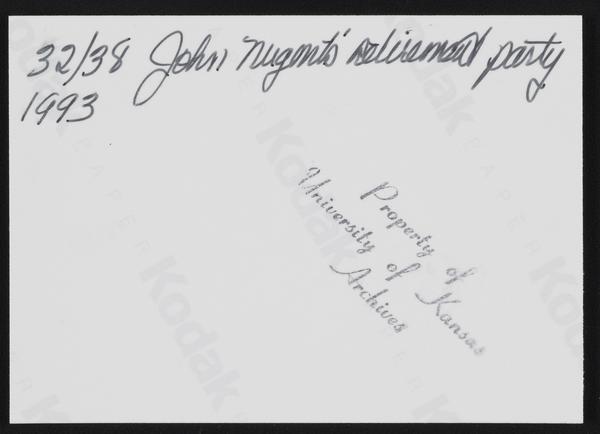 32/38 John Nugent's retirement party
1993
Property of
University of Kansas
Archives
Kodak
PAPER
Kodak
PAPER
Kodak